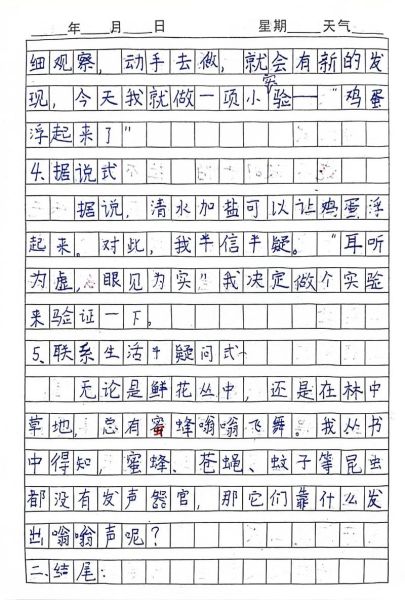 年 月 日 星期 天气
细观察，动手去做，就会有新的发
现，今天我就做一项小实验——"鸡蛋
浮起来了"
4、据说式
据说，清水加盐可以让鸡蛋浮
起来。对此，我半信半疑。"耳听
为虚，眼见为实"我决定做个实验
来验证一下。
5、联系生活+疑问式
无论是鲜花丛中，还是在林中
草地，总有蜜蜂嗡嗡飞舞。我从书
中得知，蜜蜂、苍蝇、蚊子等昆虫
都没有发声器官，那它们靠什么发
出嗡嗡声呢？
二、结尾：